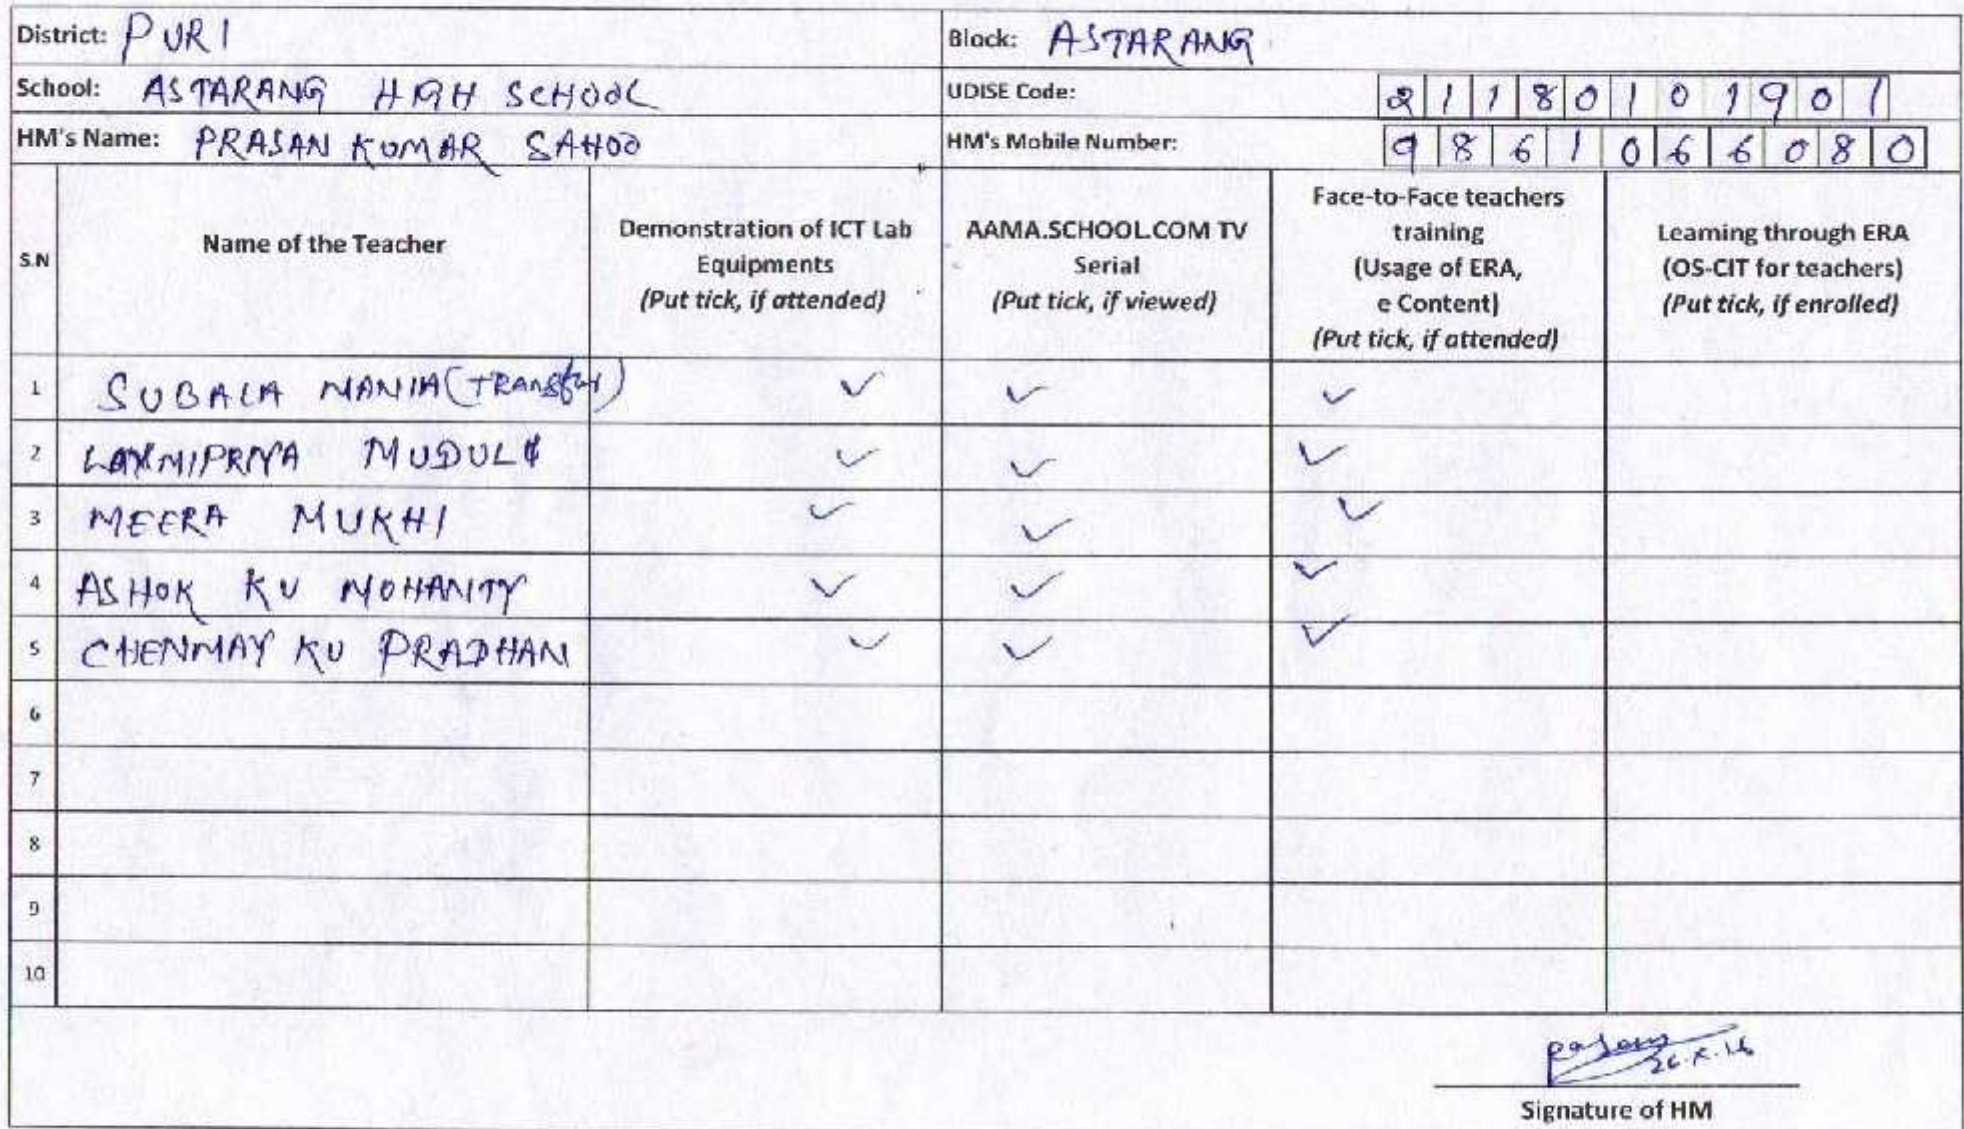 District: PURI Block: ASTARANG
School: ASTARANG HIGH SCHOOL UDISE Code: 2 1 1 8 0 1 0 1 9 0 1
HM's Name: PRASAN KUMAR SAHOO HM's Mobile Number: 9 8 6 1 0 6 6 0 8 0
S.N
Name of the Teacher
Demonstration of ICT Lab
Equipments
(Put tick, if attended)
AAMA.SCHOOL.COM TV
Serial
(Put tick, if viewed)
Face-to-Face teachers
training
(Usage of ERA,
e Content)
(Put tick, if attended)
Learning through ERA
(OS-CIT for teachers)
(Put tick, if enrolled)
1 SUBALA MANIA (TRANSfer) ✓ ✓ ✓
2 LAXMIPRIYA MUDULI ✓ ✓ ✓
3 MEERA MUKHI ✓ ✓ ✓
4 ASHOK KU MOHANTY ✓ ✓ ✓
5 CHENMAY KU PRADHAN ✓ ✓ ✓
6
7
8
9
10
Signature of HM